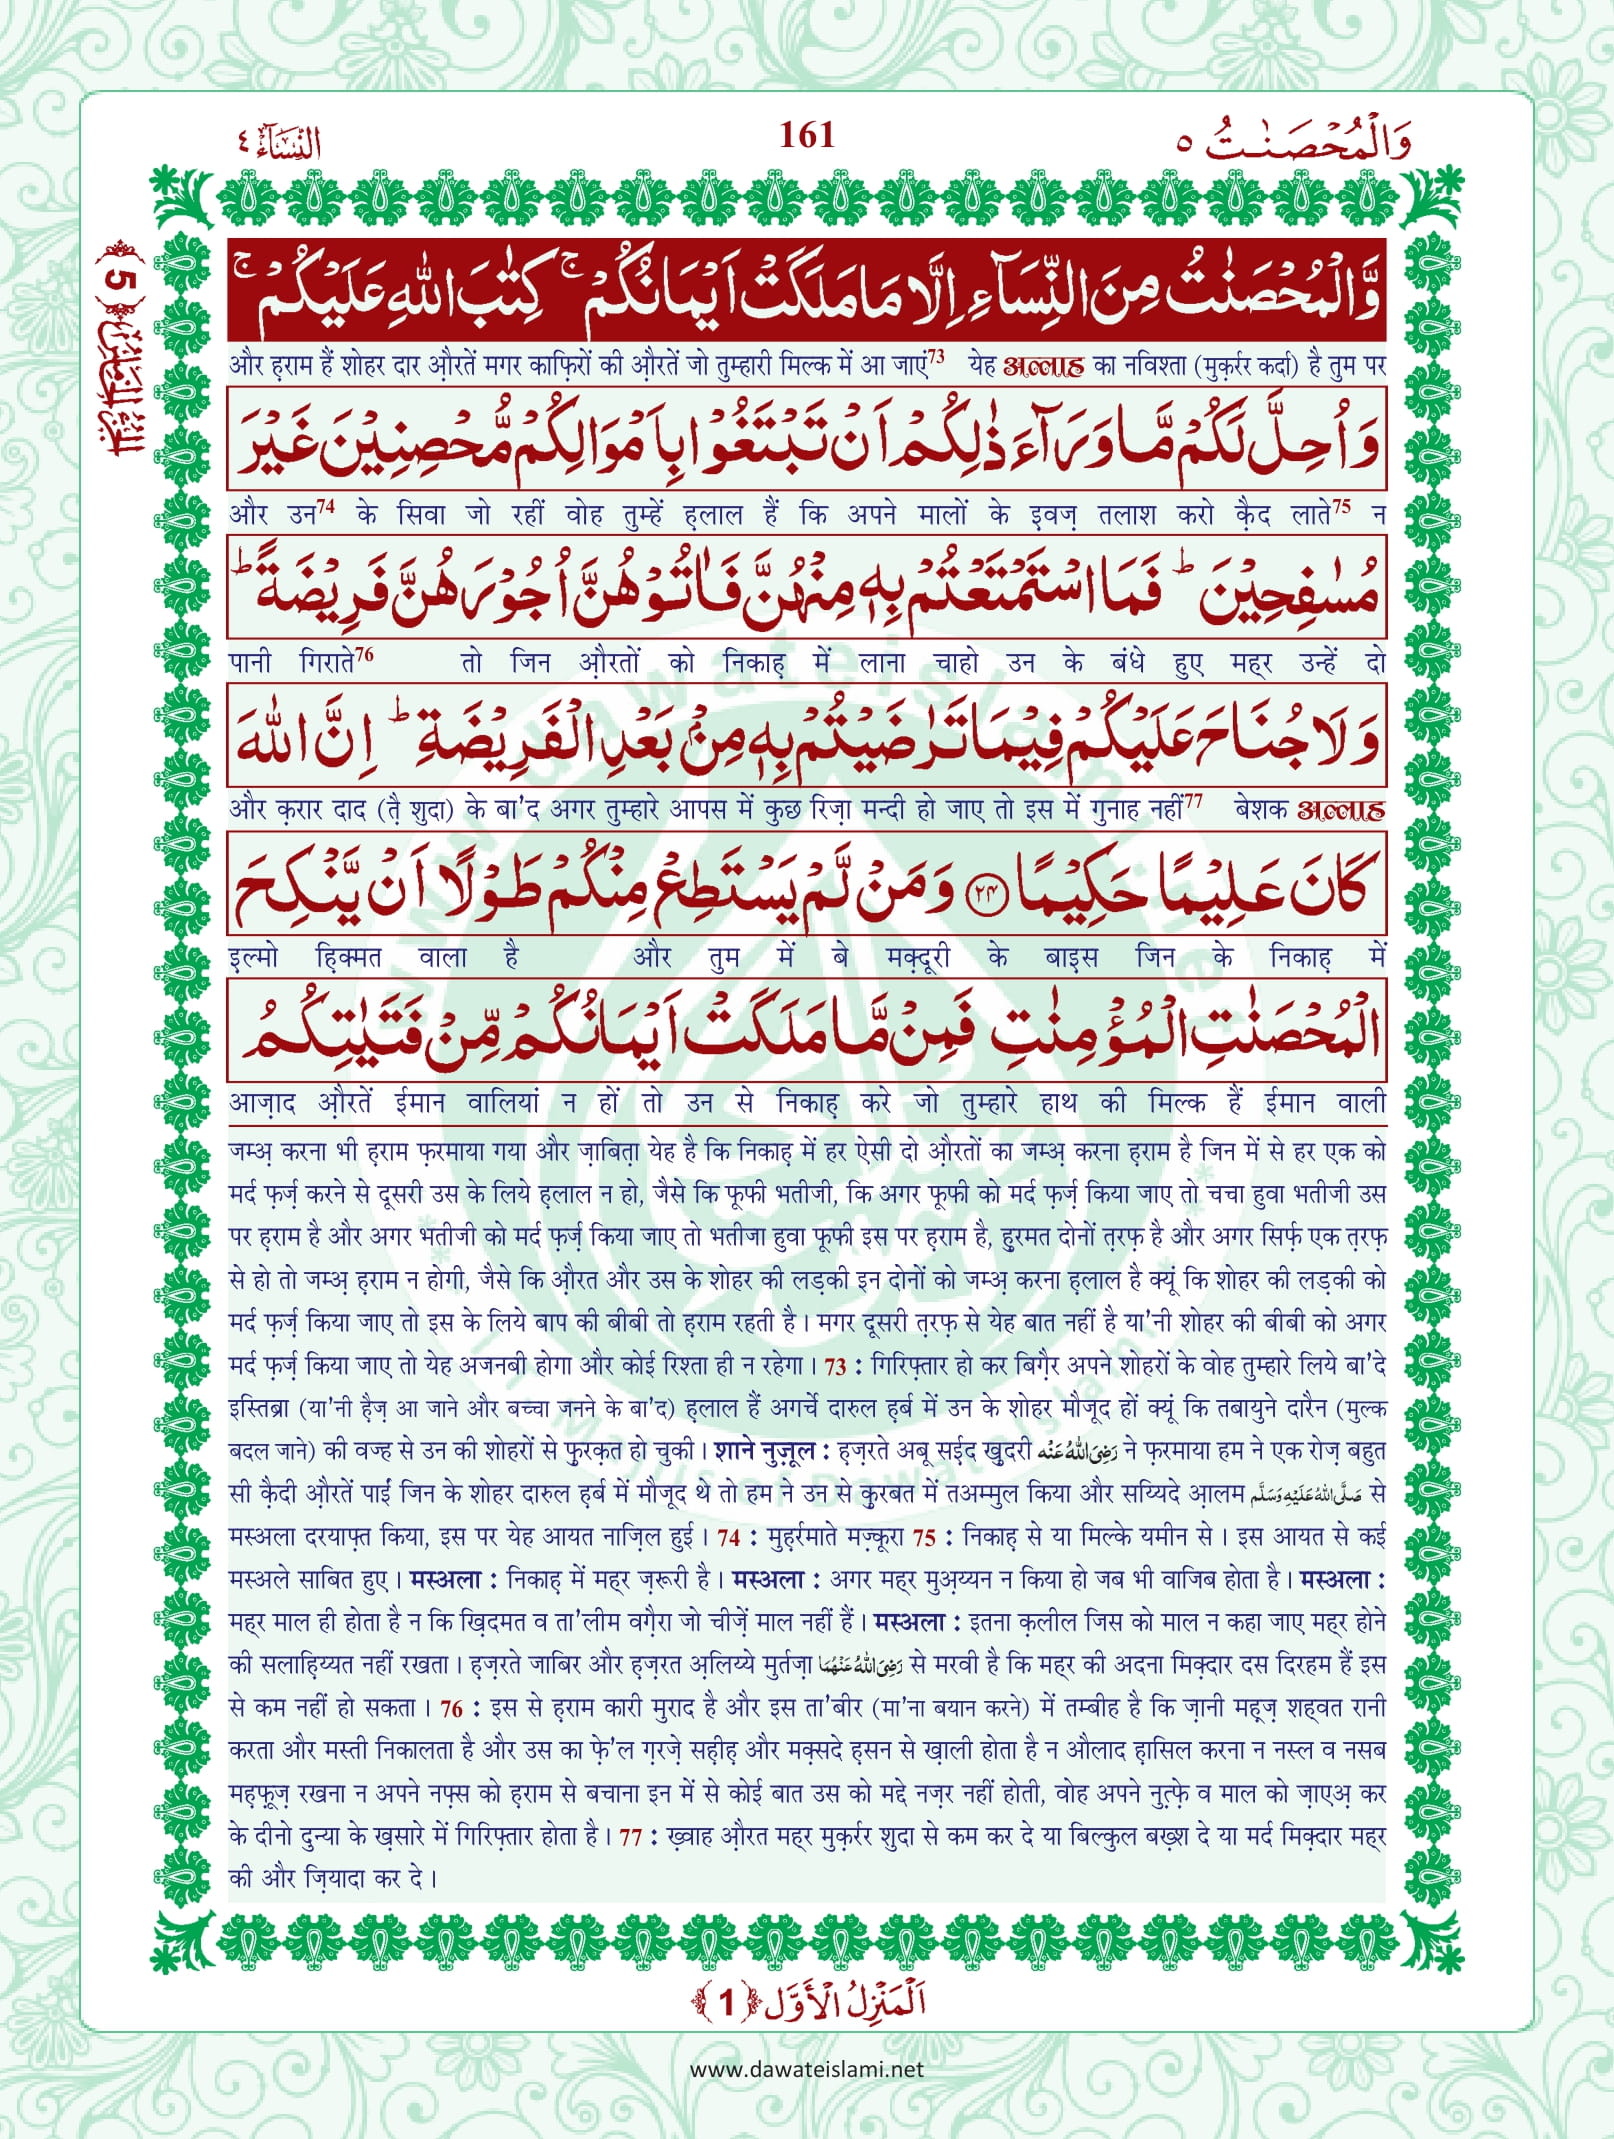 وَالْمُحْصَنٰتُ ٥
161
النِّسَآءُ ٤
5
وَّالْمُحْصَنٰتُ مِنَ النِّسَآءِ اِلَّا مَا مَلَكَتْ اَيْمَانُكُمْ ۚ كِتٰبَ اللّٰهِ عَلَيْكُمْ ۚ
और ह़राम हैं शोहर दार औ़रतें मगर काफ़िरों की औ़रतें जो तुम्हारी मिल्क में आ जाएं73 येह अल्लाह का नविश्ता (मुक़र्रर कर्दा) है तुम पर
وَ اُحِلَّ لَكُمْ مَّا وَرَآءَ ذٰلِكُمْ اَنْ تَبْتَغُوْا بِاَمْوَالِكُمْ مُّحْصِنِيْنَ غَيْرَ
और उन74 के सिवा जो रहीं वोह तुम्हें ह़लाल हैं कि अपने मालों के इवज़ तलाश करो क़ैद लाते75 न
مُسٰفِحِيْنَ ؕ فَمَا اسْتَمْتَعْتُمْ بِهٖ مِنْهُنَّ فَاٰتُوْهُنَّ اُجُوْرَهُنَّ فَرِيْضَةً ؕ
पानी गिराते76 तो जिन औ़रतों को निकाह़ में लाना चाहो उन के बंधे हुए मह्र उन्हें दो
وَ لَا جُنَاحَ عَلَيْكُمْ فِيْمَا تَرٰضَيْتُمْ بِهٖ مِنْۢ بَعْدِ الْفَرِيْضَةِ ؕ اِنَّ اللّٰهَ
और क़रार दाद (त़ै शुदा) के बा'द अगर तुम्हारे आपस में कुछ रिज़ा मन्दी हो जाए तो इस में गुनाह नहीं77 बेशक अल्लाह
كَانَ عَلِيْمًا حَكِيْمًا ﴿۲۴﴾ وَ مَنْ لَّمْ يَسْتَطِعْ مِنْكُمْ طَوْلًا اَنْ يَّنْكِحَ
इल्मो ह़िक्मत वाला है और तुम में बे मक़्दूरी के बाइस जिन के निकाह़ में
الْمُحْصَنٰتِ الْمُؤْمِنٰتِ فَمِنْ مَّا مَلَكَتْ اَيْمَانُكُمْ مِّنْ فَتَيٰتِكُمُ
आज़ाद औ़रतें ईमान वालियां न हों तो उन से निकाह़ करे जो तुम्हारे हाथ की मिल्क हैं ईमान वाली
जम्अ़ करना भी ह़राम फ़रमाया गया और ज़ाबित़ा येह है कि निकाह़ में हर ऐसी दो औ़रतों का जम्अ़ करना ह़राम है जिन में से हर एक को
मर्द फ़र्ज़ करने से दूसरी उस के लिये ह़लाल न हो, जैसे कि फूफी भतीजी, कि अगर फूफी को मर्द फ़र्ज़ किया जाए तो चचा हुवा भतीजी उस
पर ह़राम है और अगर भतीजी को मर्द फ़र्ज़ किया जाए तो भतीजा हुवा फूफी इस पर ह़राम है, ह़ुरमत दोनों त़रफ़ है और अगर सिर्फ़ एक त़रफ़
से हो तो जम्अ़ ह़राम न होगी, जैसे कि औ़रत और उस के शोहर की लड़की इन दोनों को जम्अ़ करना ह़लाल है क्यूं कि शोहर की लड़की को
मर्द फ़र्ज़ किया जाए तो इस के लिये बाप की बीबी तो ह़राम रहती है। मगर दूसरी त़रफ़ से येह बात नहीं है या'नी शोहर की बीबी को अगर
मर्द फ़र्ज़ किया जाए तो येह अजनबी होगा और कोई रिश्ता ही न रहेगा। 73 : गिरिफ़्तार हो कर बिग़ैर अपने शोहरों के वोह तुम्हारे लिये बा'दे
इस्तिब्रा (या'नी हैज़ आ जाने और बच्चा जनने के बा'द) ह़लाल हैं अगर्चे दारुल ह़र्ब में उन के शोहर मौजूद हों क्यूं कि तबायुने दारैन (मुल्क
बदल जाने) की वज्ह से उन की शोहरों से फ़ुरक़त हो चुकी। शाने नुज़ूल : ह़ज़रते अबू सई़द ख़ुदरी رَضِىَ اللّٰهُ عَنْه ने फ़रमाया हम ने एक रोज़ बहुत
सी क़ैदी औ़रतें पाईं जिन के शोहर दारुल ह़र्ब में मौजूद थे तो हम ने उन से क़ुरबत में तअम्मुल किया और सय्यिदे आ़लम صَلَّى اللّٰهُ عَلَيْهِ وَسَلَّم से
मस्अला दरयाफ़्त किया, इस पर येह आयत नाज़िल हुई। 74 : मुह़र्रमाते मज़्कूरा 75 : निकाह़ से या मिल्के यमीन से। इस आयत से कई
मस्अले साबित हुए। मस्अला : निकाह़ में मह्र ज़रूरी है। मस्अला : अगर मह्र मुअ़य्यन न किया हो जब भी वाजिब होता है। मस्अला :
मह्र माल ही होता है न कि ख़िदमत व ता'लीम वग़ैरा जो चीज़ें माल नहीं हैं। मस्अला : इतना क़लील जिस को माल न कहा जाए मह्र होने
की सलाह़िय्यत नहीं रखता। ह़ज़रते जाबिर और ह़ज़रत अ़लिय्ये मुर्तज़ा رَضِىَ اللّٰهُ عَنْهُمَا से मरवी है कि मह्र की अदना मिक़्दार दस दिरहम हैं इस
से कम नहीं हो सकता। 76 : इस से ह़राम कारी मुराद है और इस ता'बीर (मा'ना बयान करने) में तम्बीह है कि ज़ानी मह़्ज़ शह्वत रानी
करता और मस्ती निकालता है और उस का फ़े'ल ग़रज़े सह़ीह़ और मक़्सदे ह़सन से ख़ाली होता है न औलाद ह़ासिल करना न नस्ल व नसब
मह़फ़ूज़ रखना न अपने नफ़्स को ह़राम से बचाना इन में से कोई बात उस को मद्दे नज़र नहीं होती, वोह अपने नुत़्फ़े व माल को ज़ाएअ़ कर
के दीनो दुन्या के ख़सारे में गिरिफ़्तार होता है। 77 : ख़्वाह औ़रत मह्र मुक़र्रर शुदा से कम कर दे या बिल्कुल बख़्श दे या मर्द मिक़्दार मह्र
की और ज़ियादा कर दे।
اَلْمَنْزِلُ الْاَوَّل ﴿1﴾
www.dawateislami.net